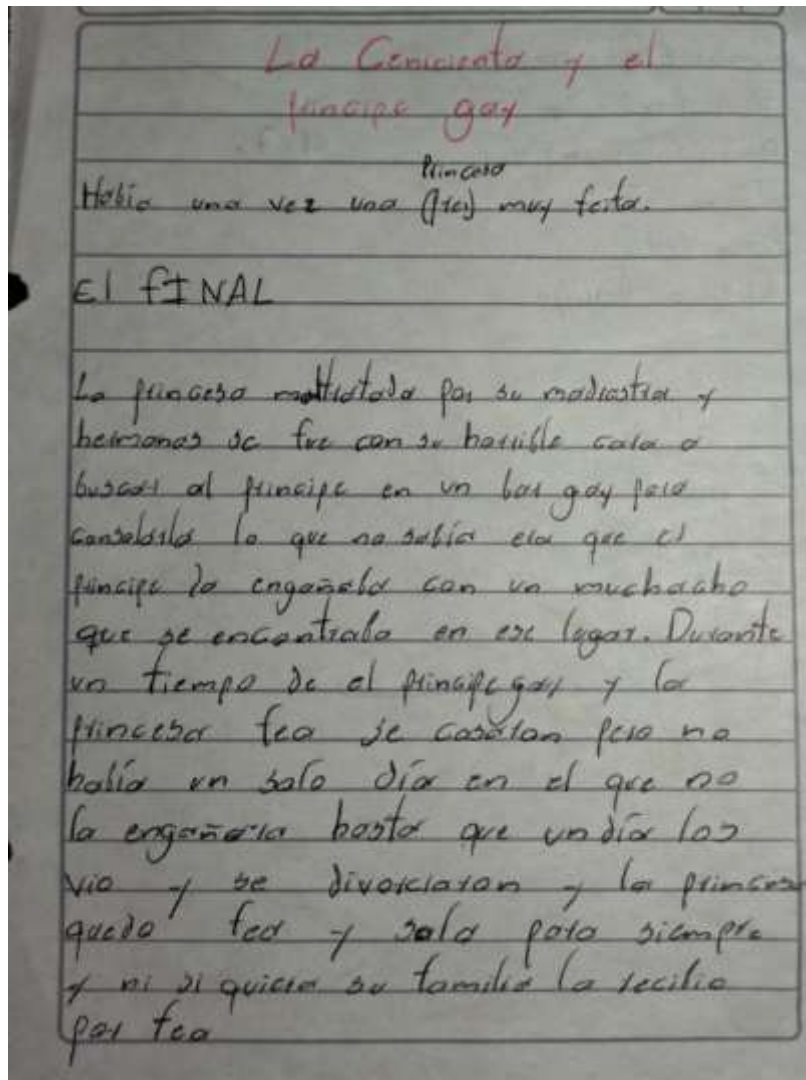 La Ceniciento y el
principe gay
Princesa
Había una vez una (Prei) muy feita.
El fINAL
La princesa maltratada por su madrastra y
hermanas se fue con su horrible cara a
buscar al principe en un bar gay para
consolarla lo que no sabía era que el
principe la engañaba con un muchacho
que se encontraba en ese lugar. Durante
un tiempo de el principe gay y la
princesa fea se casaron pero no
había un solo día en el que no
la engañara hasta que un día los
vio y se divorciaron y la princesa
quedo fea y sola para siempre
y ni si quiera su familia la recibio
por fea